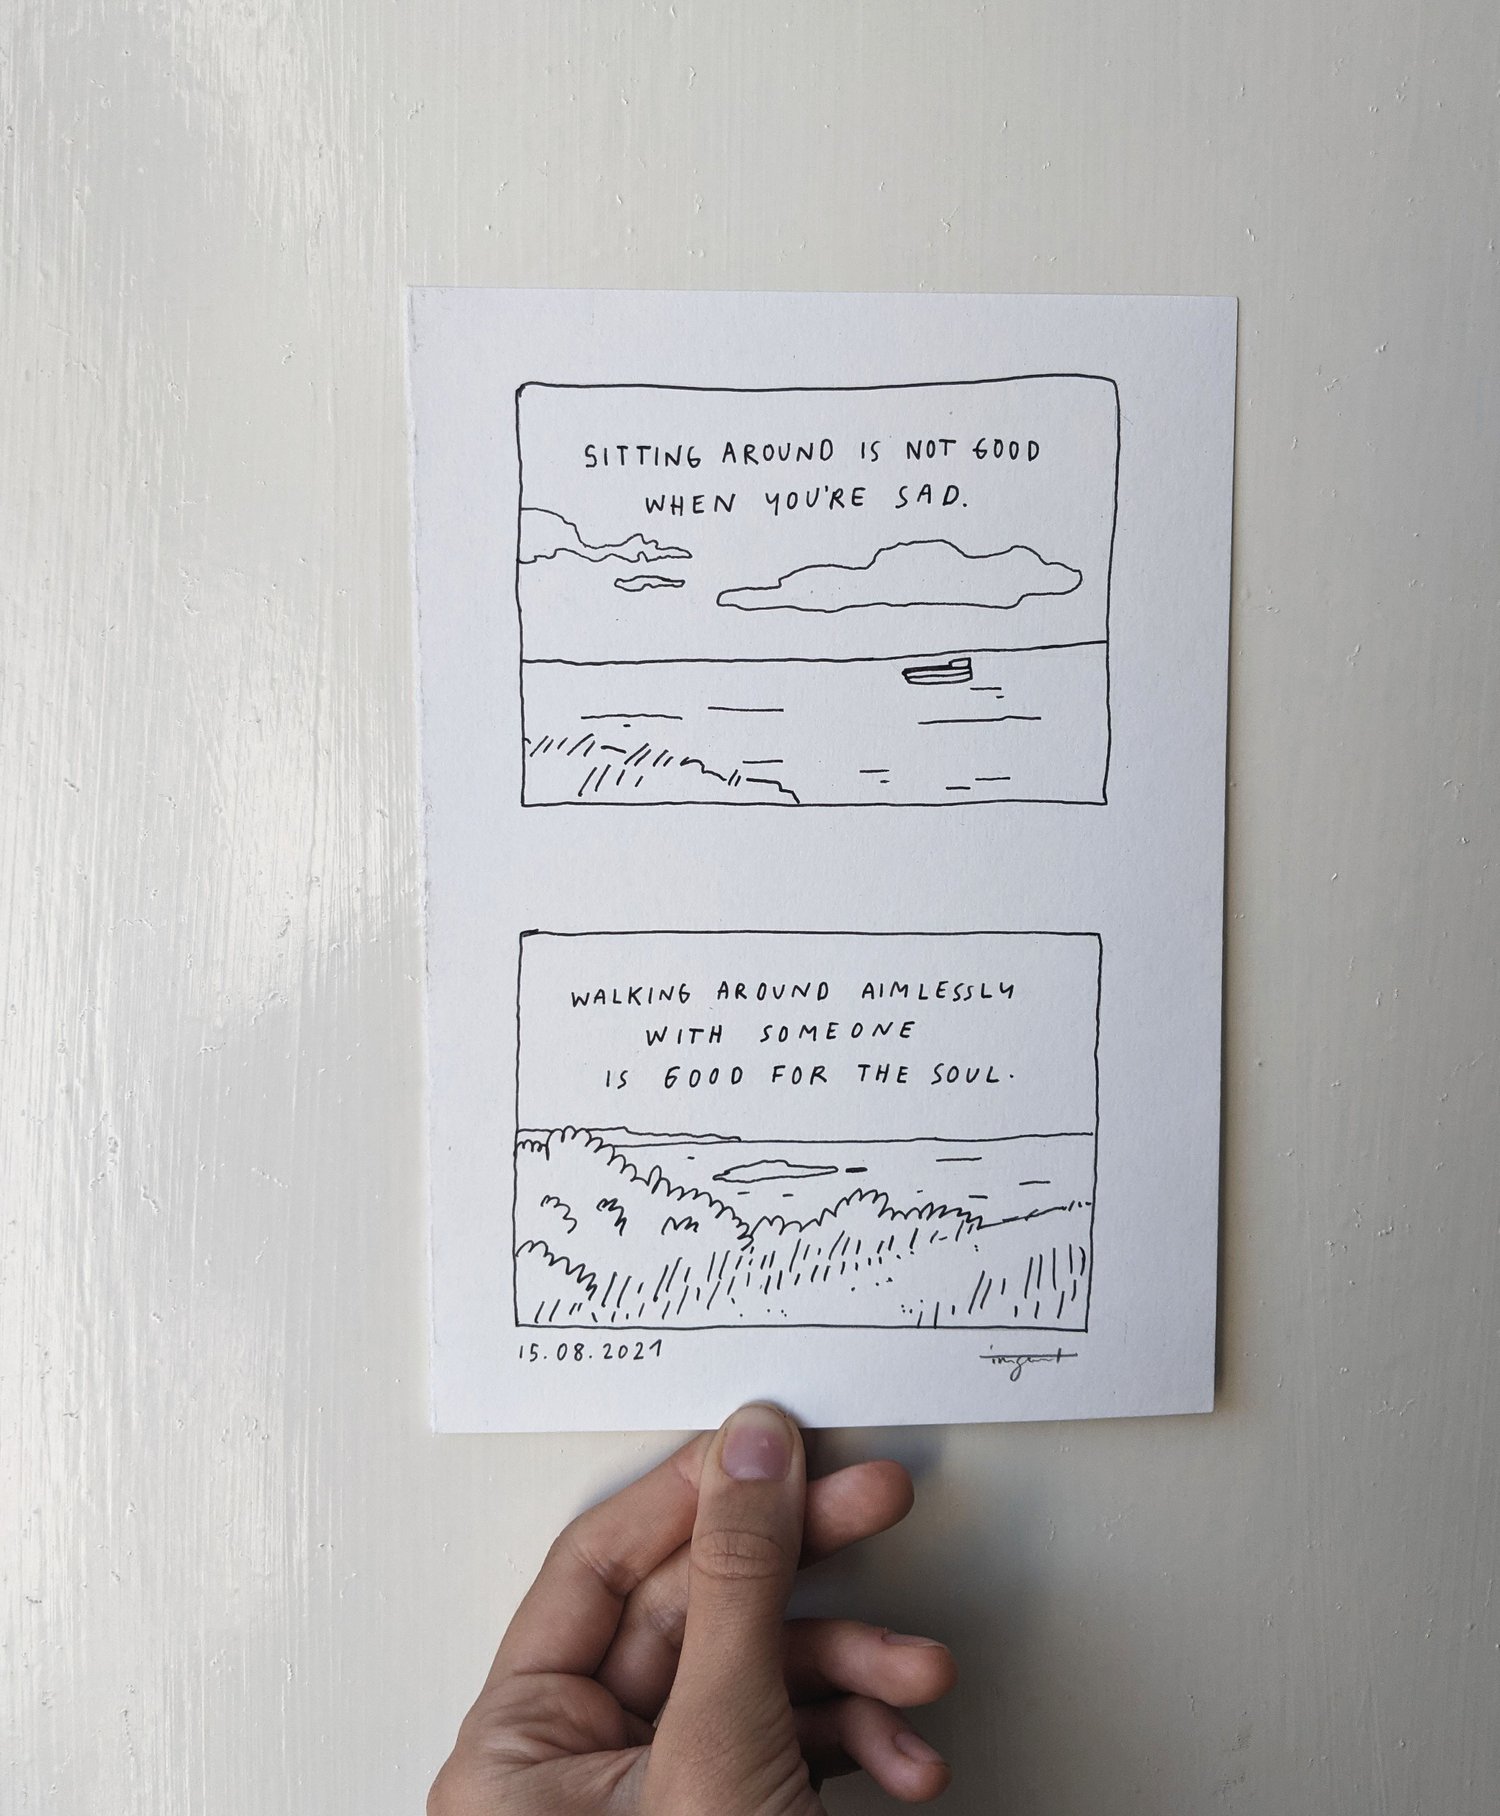 SITTING AROUND IS NOT GOOD
WHEN YOU'RE SAD.
WALKING AROUND AIMLESSLY
WITH SOMEONE
IS GOOD FOR THE SOUL.
15.08.2021